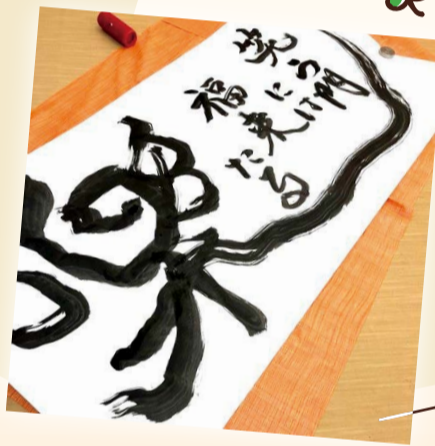 笑う門
には
福来
たる